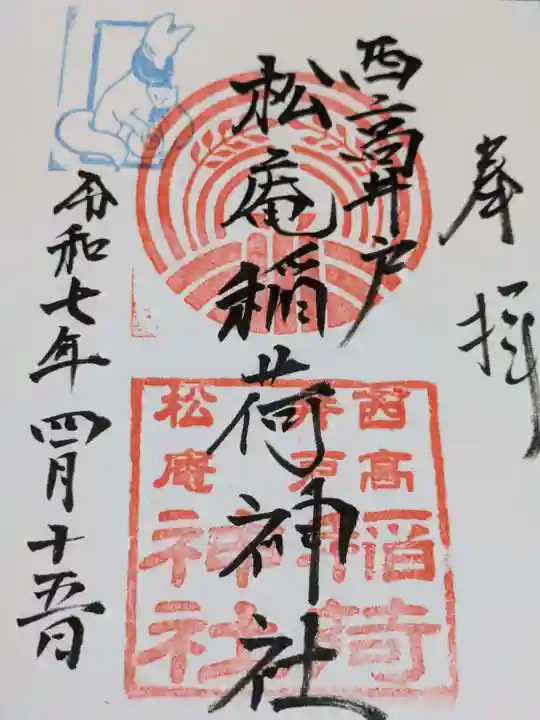 奉拝
西高井戸
松庵稲荷神社
令和七年四月十五日
西高
井戸
松庵
稲荷
神社